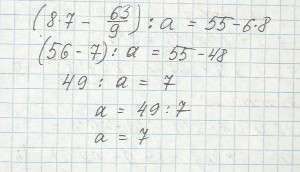 (8·7 - 63/9) : a = 55-6·8
(56-7) : a = 55-48
49 : a = 7
a = 49:7
a = 7